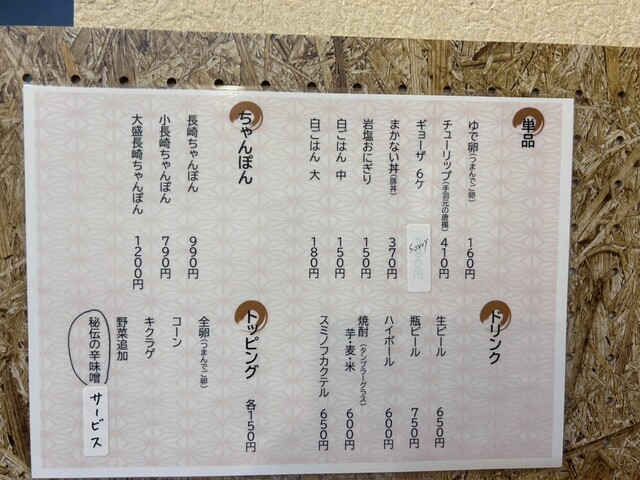 単品
ゆで卵(つまんでご卵) 160円
チューリップ(手羽元の唐揚) 410円
ギョーザ 6ケ sorry
まかない丼(豚丼) 370円
岩塩おにぎり 150円
白ごはん 中 150円
白ごはん 大 180円
ちゃんぽん
長崎ちゃんぽん 990円
小長崎ちゃんぽん 790円
大盛長崎ちゃんぽん 1200円
ドリンク
生ビール 650円
瓶ビール 750円
ハイボール 600円
焼酎(タンブラーグラス)
芋・麦・米 600円
スミノフカクテル 650円
トッピング 各150円
全卵(つまんでご卵)
コーン
キクラゲ
野菜追加
秘伝の辛味噌 サービス